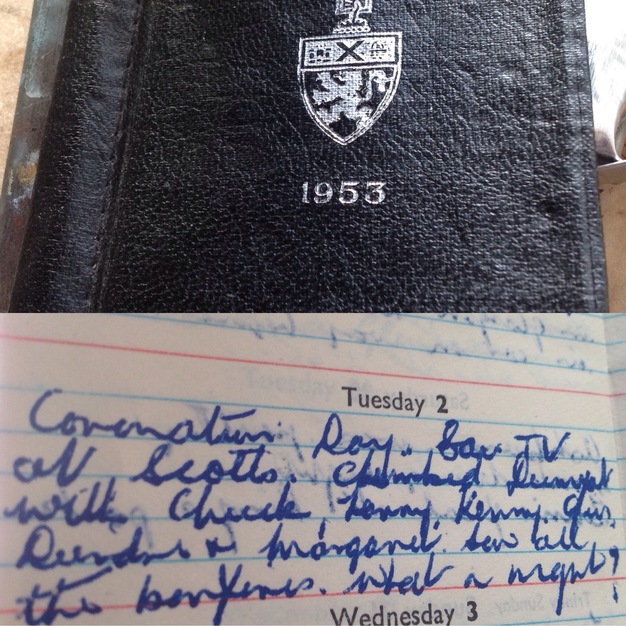 1953
Tuesday 2
Coronation Day. Saw TV
at Scotts. Climbed Dumyat
with Chuck, Kenny,
& Margaret. Saw all
the bonfires. What a night!
Wednesday 3